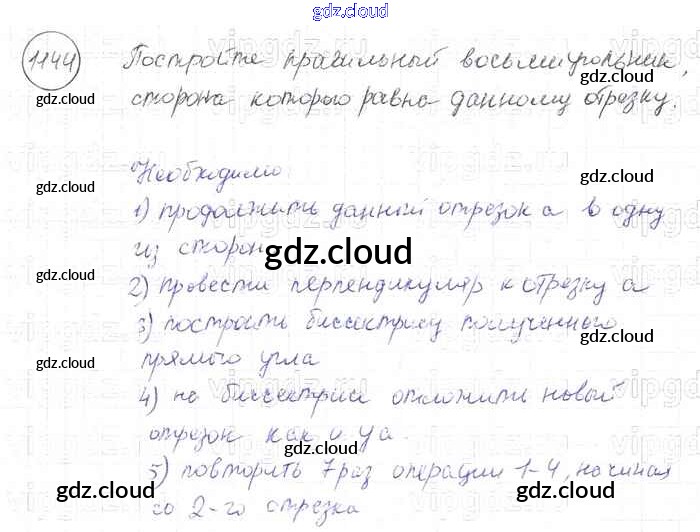 gdz.cloud
1144 Постройте правильный восьмиугольник,
gdz.cloud gdz.cloud
сторона которого равна данному отрезку.
gdz.cloud gdz.cloud gdz.cloud
Необходимо:
gdz.cloud gdz.cloud
1) продолжить данный отрезок а в одну
из сторон
gdz.cloud gdz.cloud gdz.cloud
2) провести перпендикуляр к отрезку а
3) построить биссектрису полученного
прямого угла
gdz.cloud gdz.cloud
4) на биссектрисе отложить новый
отрезок как и у а.
gdz.cloud gdz.cloud
5) повторить 7 раз операции 1-4, начиная
со 2-го отрезка
gdz.cloud gdz.cloud gdz.cloud